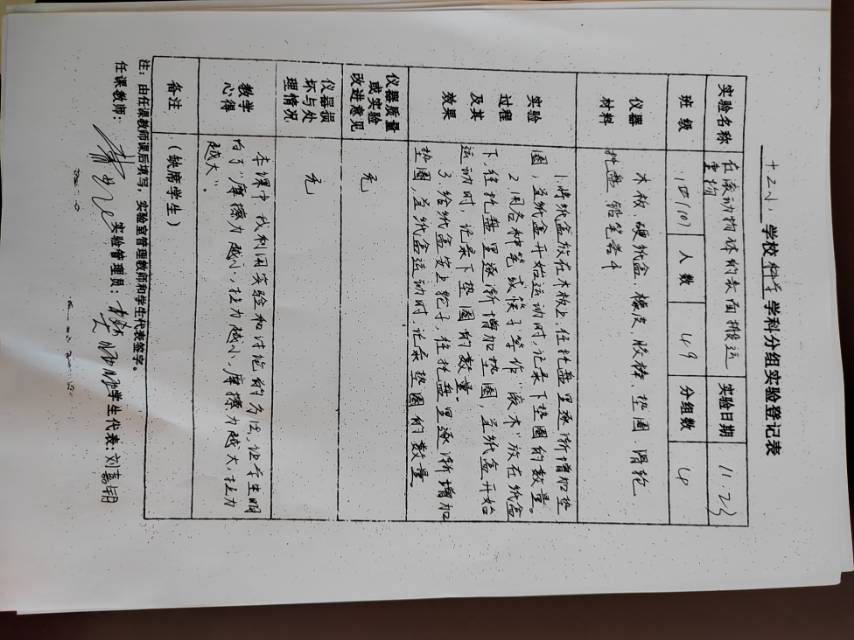 十二小 学校 科学 学科分组实验登记表
实验名称 在滚动物体的表面搬运
重物 实验日期 11.23
班级 人数 49 分组数 4
仪器
材料 木板、硬纸盒、橡皮、胶棒、垫圈、滑轮、
托盘、铅笔若干
实验
过程
及其
效果 1.将纸盒放在木板上,往托盘里逐渐增加垫
圈,至纸盒开始运动时,记录下垫圈的数量。
2.用各种笔或筷子等作“滚木”放在纸盒
下,往托盘里逐渐增加垫圈,至纸盒开始
运动时,记录下垫圈的数量。
3.给纸盒安上轮子,往托盘里逐渐增加
垫圈,至纸盒运动时,记录垫圈的数量。
仪器质量
或实验
改进意见 无
仪器损
坏与处
理情况 无
教学
心得 本课中,我利用实验和讨论的方法,让学生明
白了“摩擦力越小,拉力越小,摩擦力越大,拉力
越大”。
备注 (缺席学生)
注:由任课教师课后填写,实验室管理教师和学生代表签字。
任课教师: 实验管理员: 学生代表:刘嘉玥